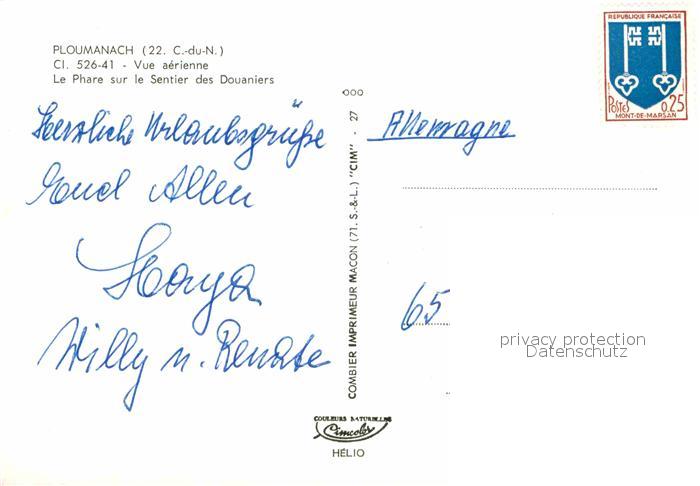 PLOUMANACH (22. C.-du-N.)
Cl. 526-41 - Vue aérienne
Le Phare sur le Sentier des Douaniers
Herzliche Urlaubsgrüße
Euch Allen
Willy u. Renate
COMBIER IMPRIMEUR MACON (71. S.-&-L.) "CIM" - 27
COULEURS NATURELLES
Cimcolor
HÉLIO
REPUBLIQUE FRANÇAISE
POSTES 0,25
MONT-DE-MARSAN
Allemagne
65
privacy protection
Datenschutz